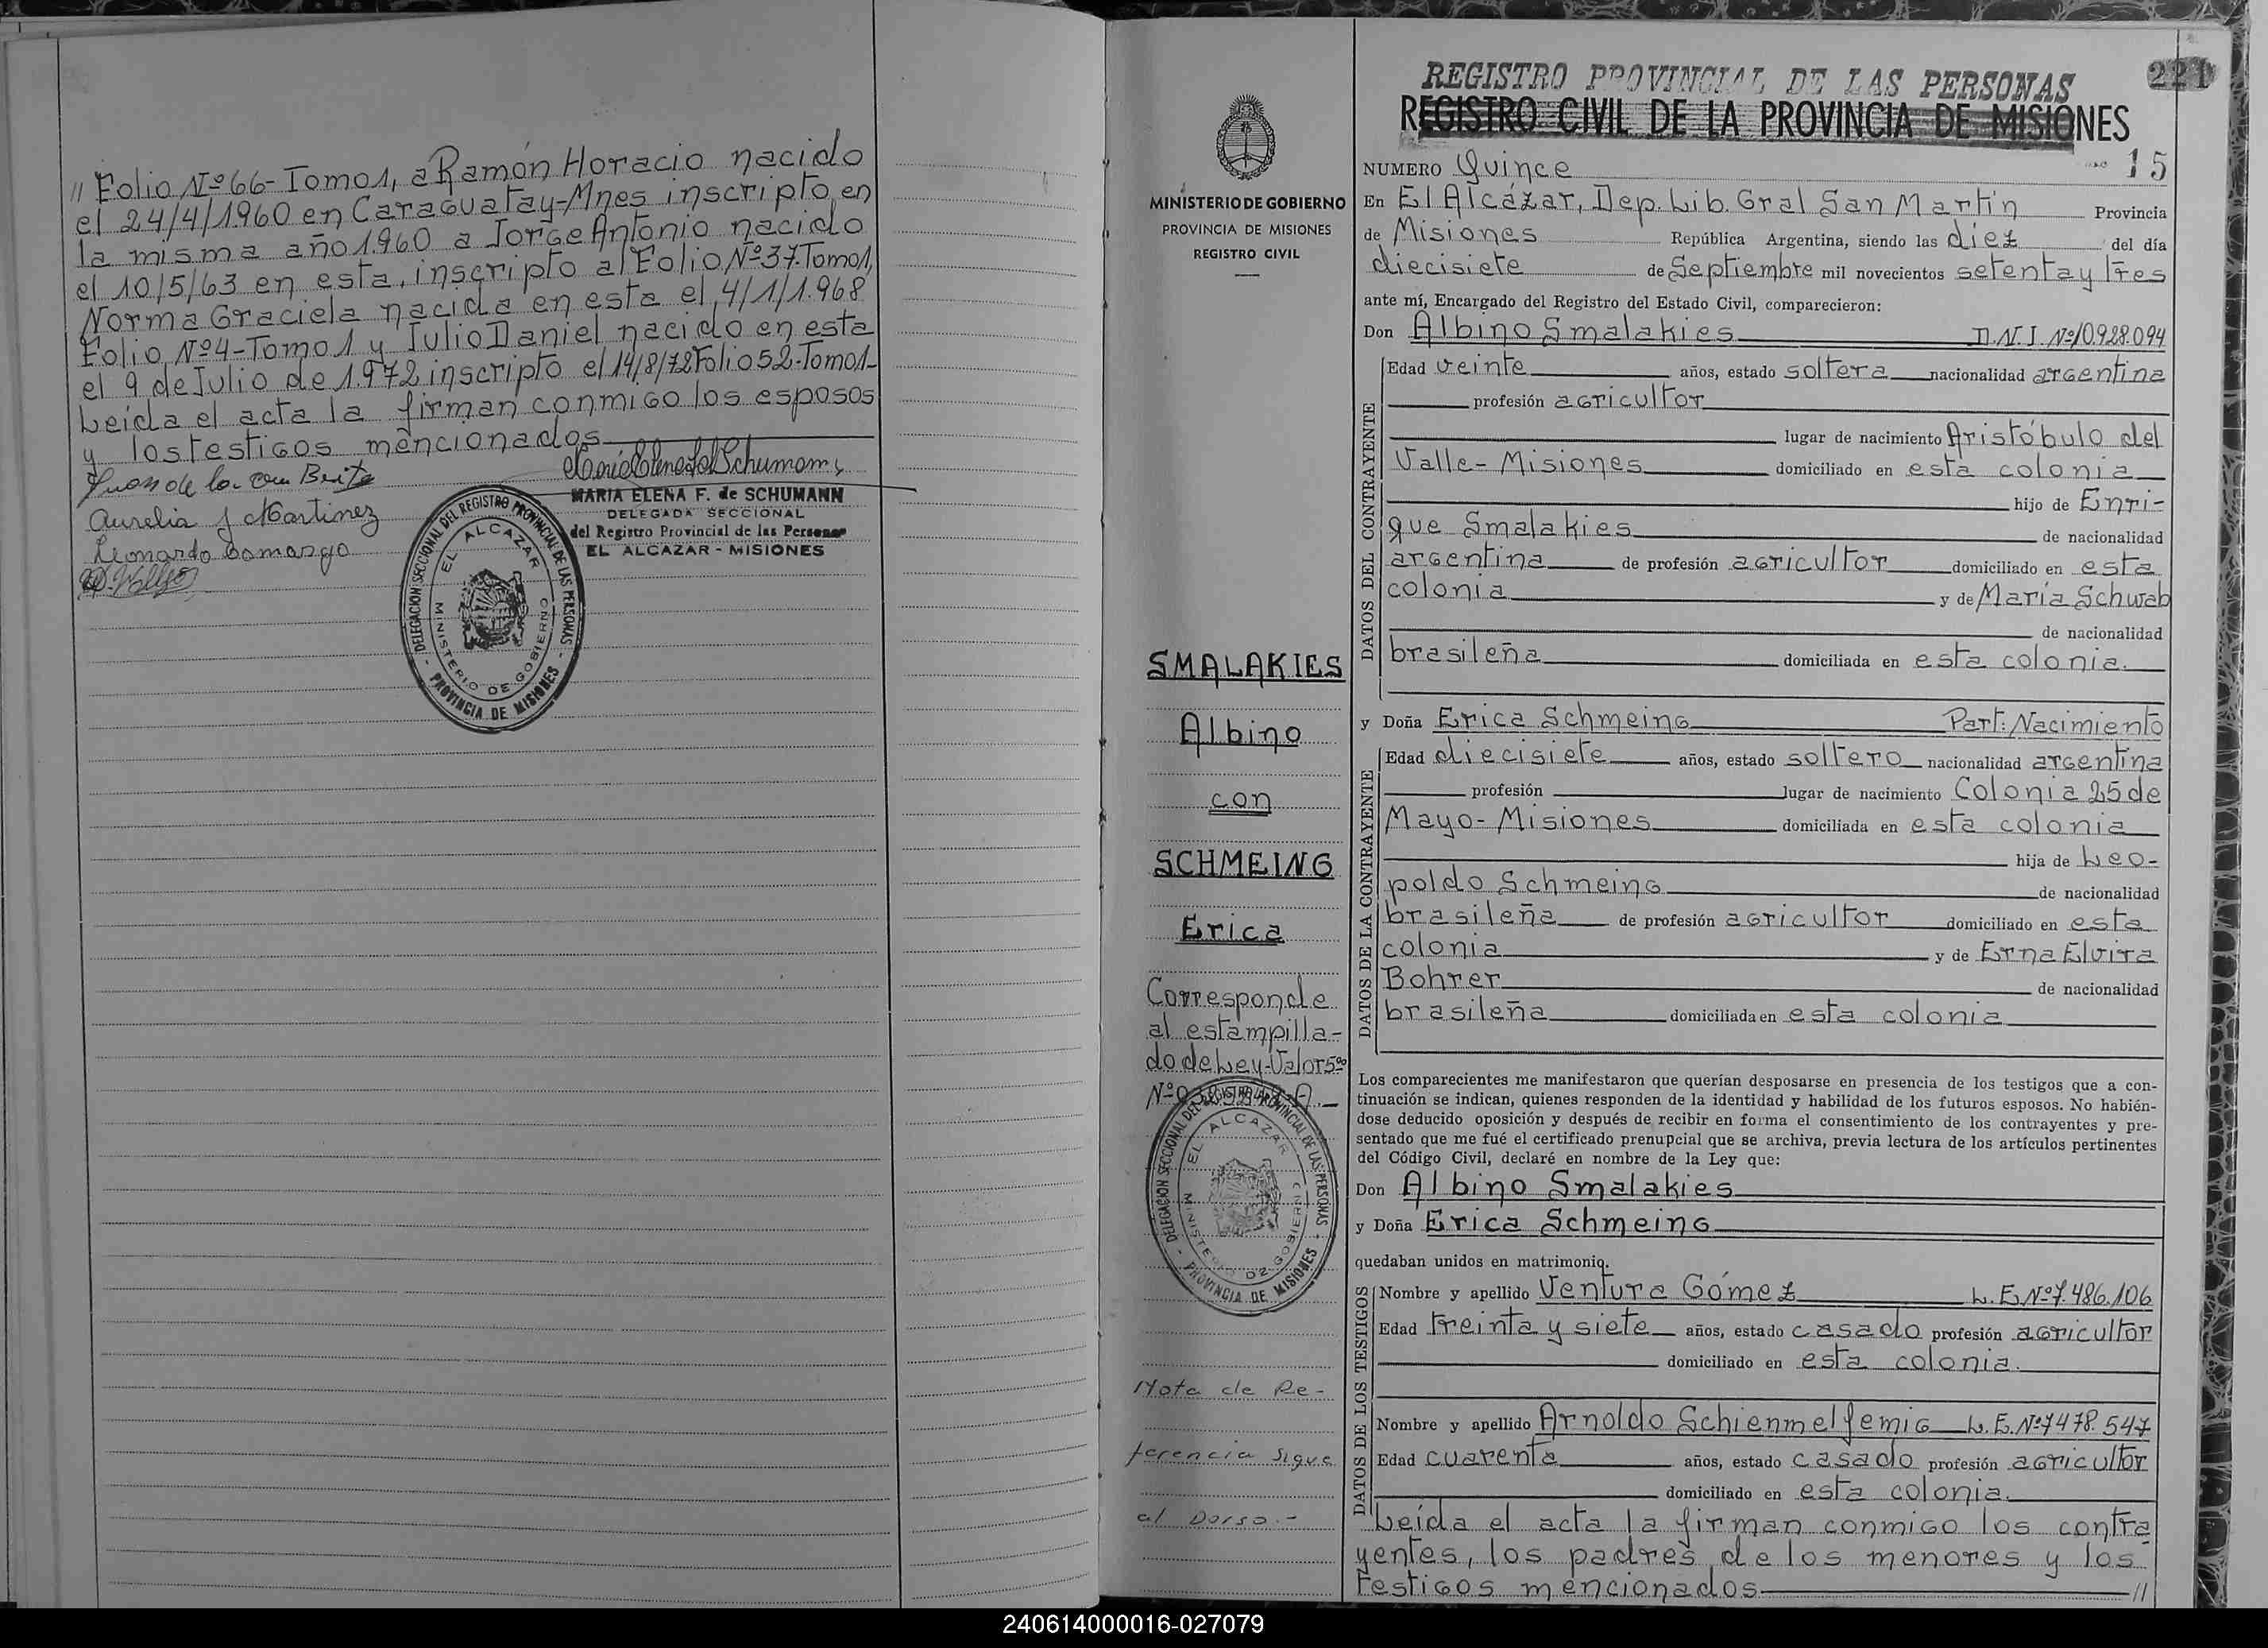 // Folio Nº 66- Tomo 1, a Ramón Horacio nacido
el 24/4/1.960 en Caraguatay-Mnes inscripto en
la misma año 1.960 a Jorge Antonio nacido
el 10/5/63 en esta, inscripto al Folio Nº 37 Tomo 1,
Norma Graciela nacida en esta el 4/1/1.968
Folio Nº 4-Tomo 1 y Julio Daniel nacido en esta
el 9 de Julio de 1.972 inscripto el 14/8/72 Folio 52-Tomo 1-
Leída el acta la firman conmigo los esposos
y los testigos mencionados
Juan de la Cruz Brite
Aurelia J Martinez
Leonardo Camargo
MARIA ELENA F. de SCHUMANN
DELEGADA SECCIONAL
del Registro Provincial de las Personas
EL ALCAZAR - MISIONES
DELEGACION SECCIONAL DEL REGISTRO PROVINCIAL DE LAS PERSONAS
EL ALCAZAR
MINISTERIO DE GOBIERNO
- PROVINCIA DE MISIONES -
MINISTERIO DE GOBIERNO
PROVINCIA DE MISIONES
REGISTRO CIVIL
SMALAKIES
Albino
con
SCHMEING
Erica
Corresponde
al estampilla-
do de Ley-Valor 5⁰⁰
Nº
DELEGACION SECCIONAL DEL REGISTRO PROVINCIAL DE LAS PERSONAS
EL ALCAZAR
MINISTERIO DE GOBIERNO
- PROVINCIA DE MISIONES -
Nota de Re-
ferencia sigue
al Dorso.-
REGISTRO PROVINCIAL DE LAS PERSONAS
221
REGISTRO CIVIL DE LA PROVINCIA DE MISIONES
NUMERO Quince 15
En El Alcázar, Dep. Lib. Gral San Martín Provincia
de Misiones República Argentina, siendo las diez del día
diecisiete de Septiembre mil novecientos setenta y tres
ante mí, Encargado del Registro del Estado Civil, comparecieron:
Don Albino Smalakies D.N.I. Nº 10.928.094
DATOS DEL CONTRAYENTE
Edad veinte años, estado soltera nacionalidad argentina
profesión agricultor
lugar de nacimiento Aristóbulo del
Valle- Misiones domiciliado en esta colonia
hijo de Enri-
que Smalakies de nacionalidad
argentina de profesión agricultor domiciliado en esta
colonia y de María Schwab
de nacionalidad
brasileña domiciliada en esta colonia.
y Doña Erica Schmeing Part: Nacimiento
DATOS DE LA CONTRAYENTE
Edad diecisiete años, estado soltero nacionalidad argentina
profesión lugar de nacimiento Colonia 25 de
Mayo- Misiones domiciliada en esta colonia
hija de Leo-
poldo Schmeing de nacionalidad
brasileña de profesión agricultor domiciliado en esta
colonia y de Erna Elvira
Bohrer de nacionalidad
brasileña domiciliada en esta colonia
Los comparecientes me manifestaron que querían desposarse en presencia de los testigos que a con-
tinuación se indican, quienes responden de la identidad y habilidad de los futuros esposos. No habién-
dose deducido oposición y después de recibir en forma el consentimiento de los contrayentes y pre-
sentado que me fué el certificado prenupcial que se archiva, previa lectura de los artículos pertinentes
del Código Civil, declaré en nombre de la Ley que:
Don Albino Smalakies
y Doña Erica Schmeing
quedaban unidos en matrimonio.
DATOS DE LOS TESTIGOS
Nombre y apellido Ventura Gómez L.E. Nº 7.486.106
Edad treinta y siete años, estado casado profesión agricultor
domiciliado en esta colonia.
Nombre y apellido Arnoldo Schienmelfemig L.E. Nº 7478.547
Edad cuarenta años, estado casado profesión agricultor
domiciliado en esta colonia.
Leída el acta la firman conmigo los contra
yentes, los padres de los menores y los
testigos mencionados //
240614000016-027079